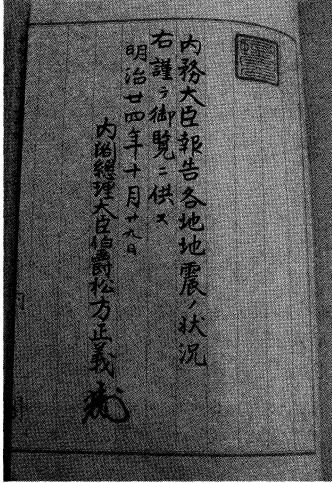 内務大臣報告各地地震ノ状況
右謹テ御覧ニ供ス
明治廿四年十月廿九日
内閣總理大臣伯爵松方正義